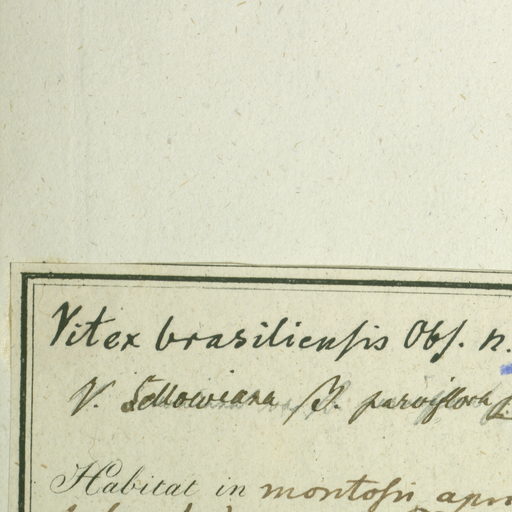 Vitex brasilienſis Obſ. n.
V. Sellowiana β. parviflora
Habitat in montoſis apri